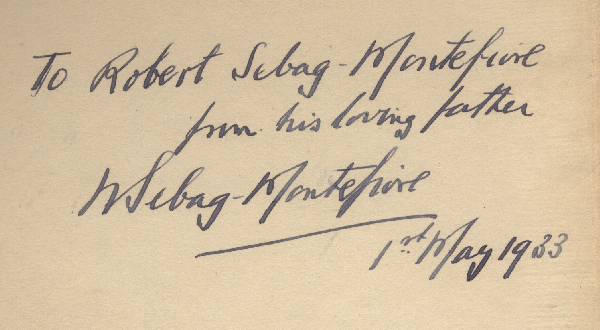 To Robert Sebag-Montefiore
from his loving father
W Sebag-Montefiore
1st May 1933